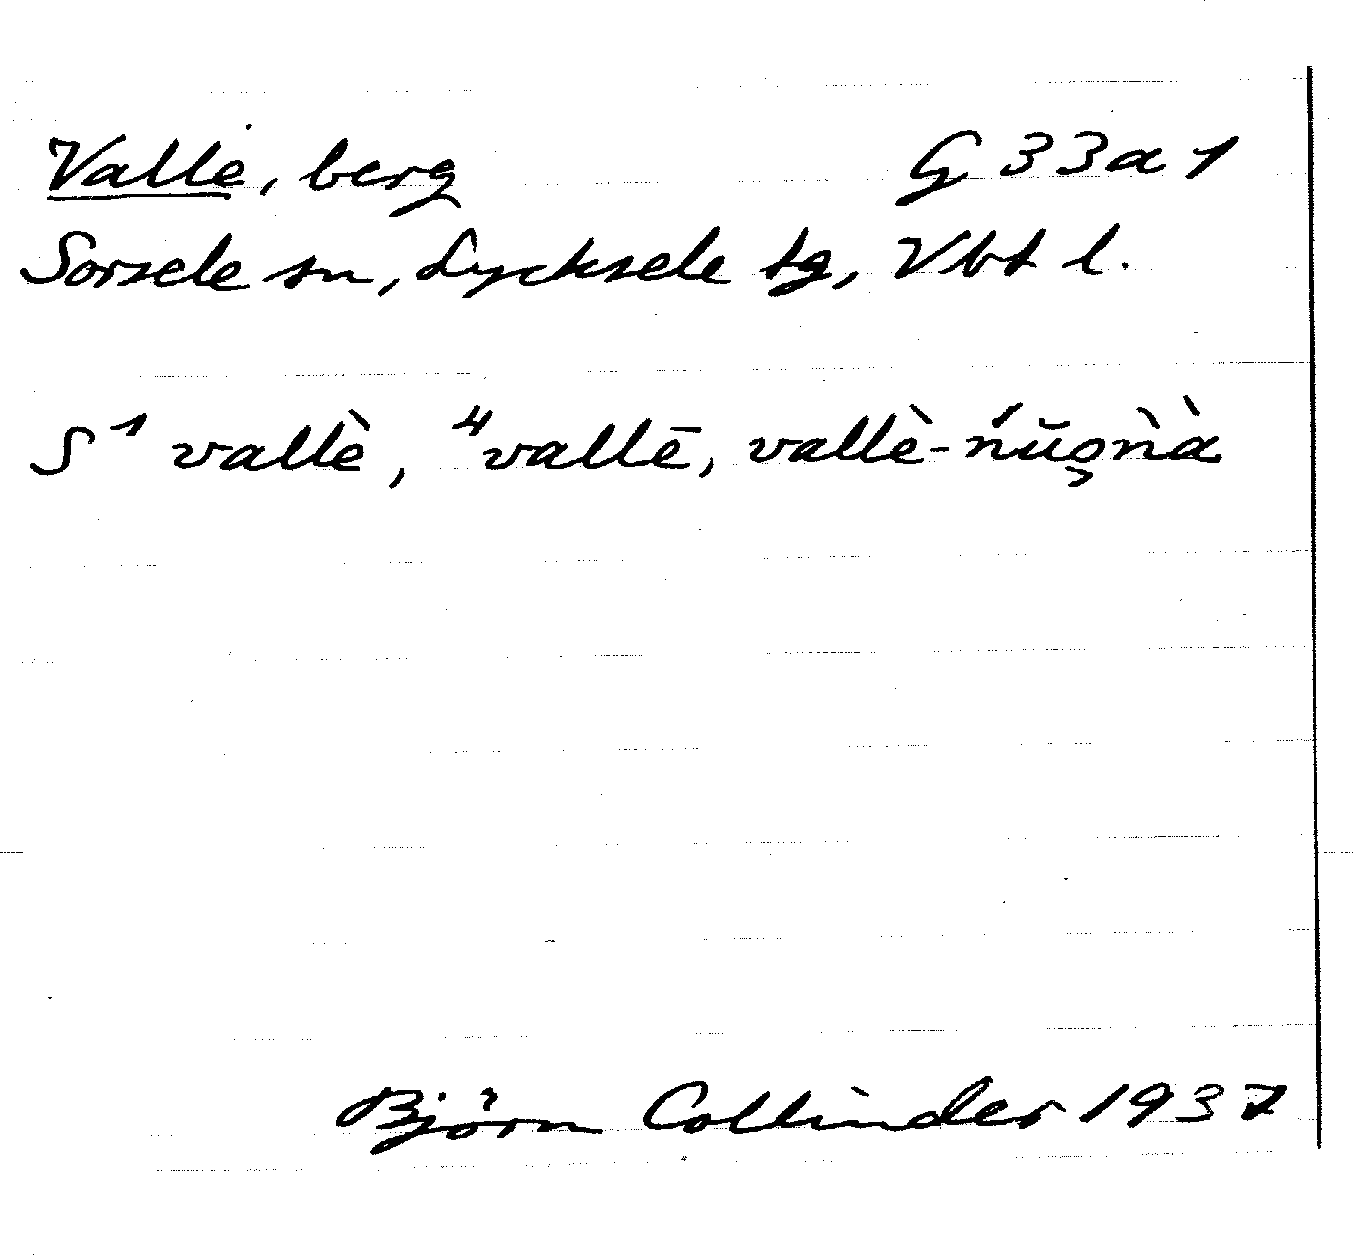 Valle, berg G 33a 1
Sorsele sn, Lycksele tg, Vbt l.
S¹ vallè, ⁴vallē, vallè-ńŭo̧ǹà
Björn Collinder 1937